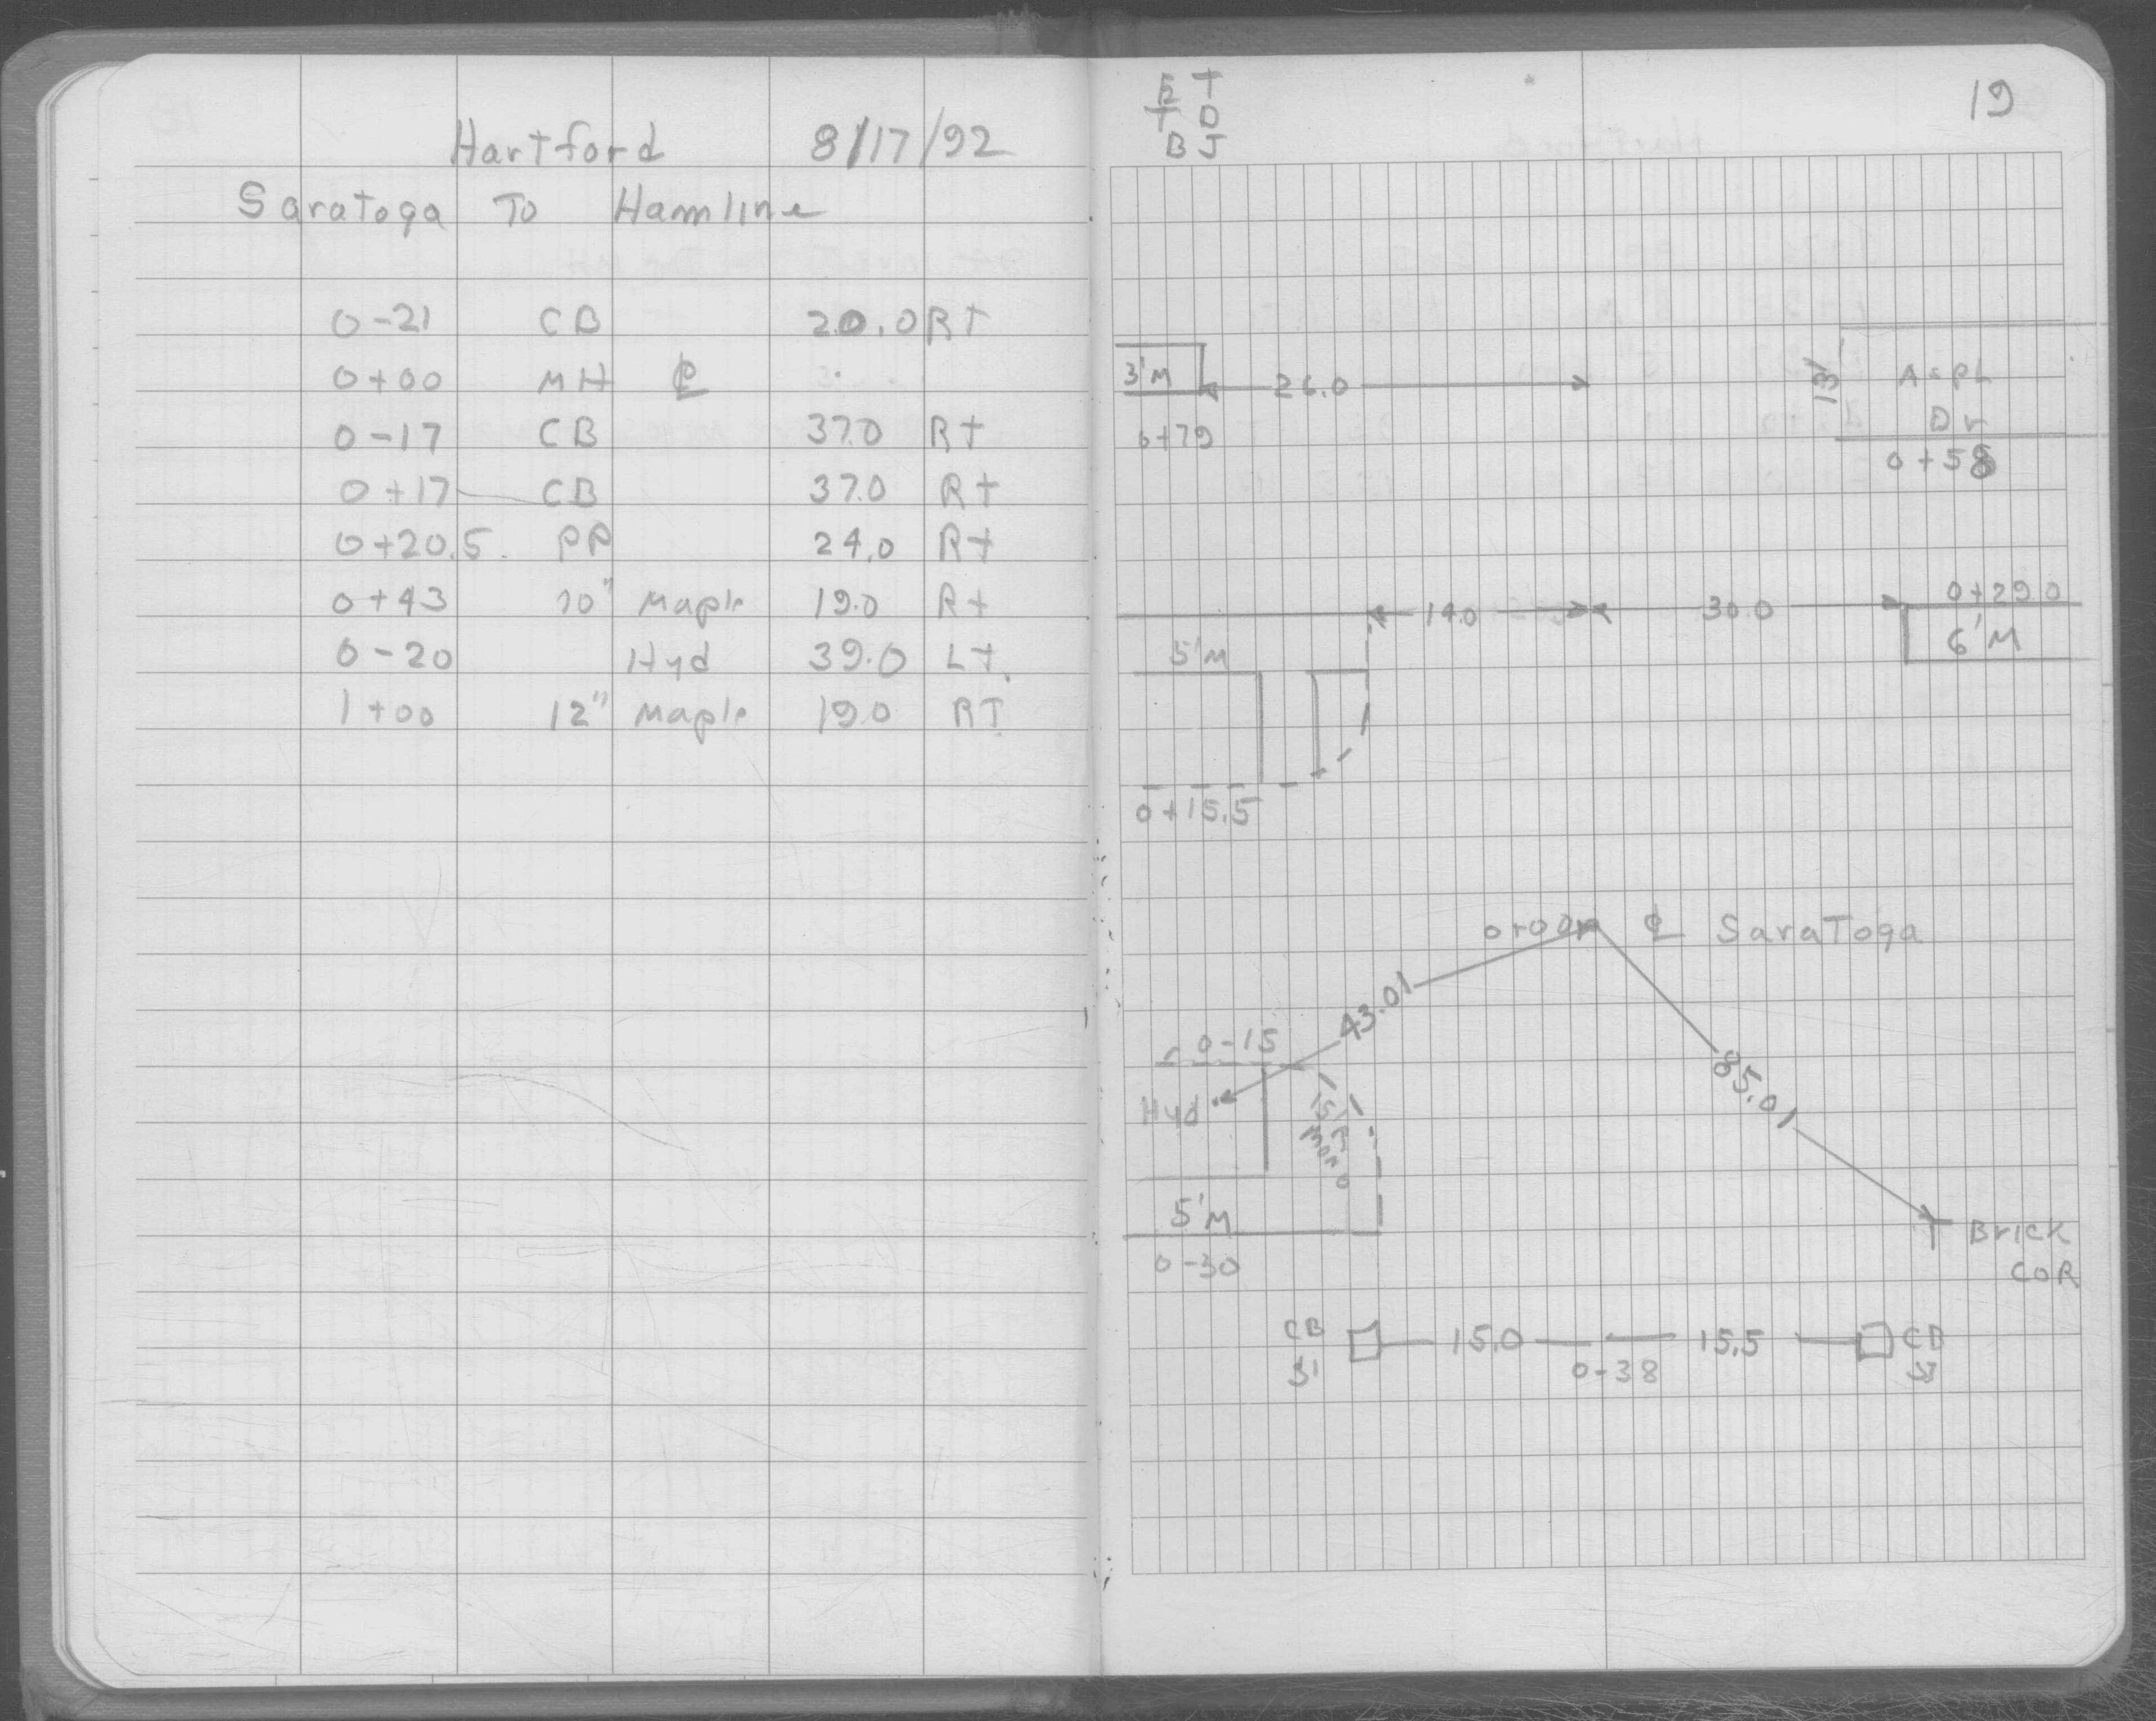 Hartford 8/17/92
Saratoga To Hamline
0-21 CB 20.0 RT
0+00 MH ℄
0-17 CB 37.0 RT
0+17 CB 37.0 RT
0+20.5 PP 24.0 RT
0+43 10" Maple 19.0 RT
0-20 Hyd 39.0 LT.
1+00 12" Maple 19.0 RT
19
T
T D
B J
3'M 26.0 13' Asph
0+79 Dr
0+58
14.0 30.0 0+29.0
5'M 6'M
0+15.5
0+00 ℄ SaraToga
43.01
0-15
85.01
Hyd
5'M
0-30
Brick
COR
CB 15.0 15.5 CB
0-38